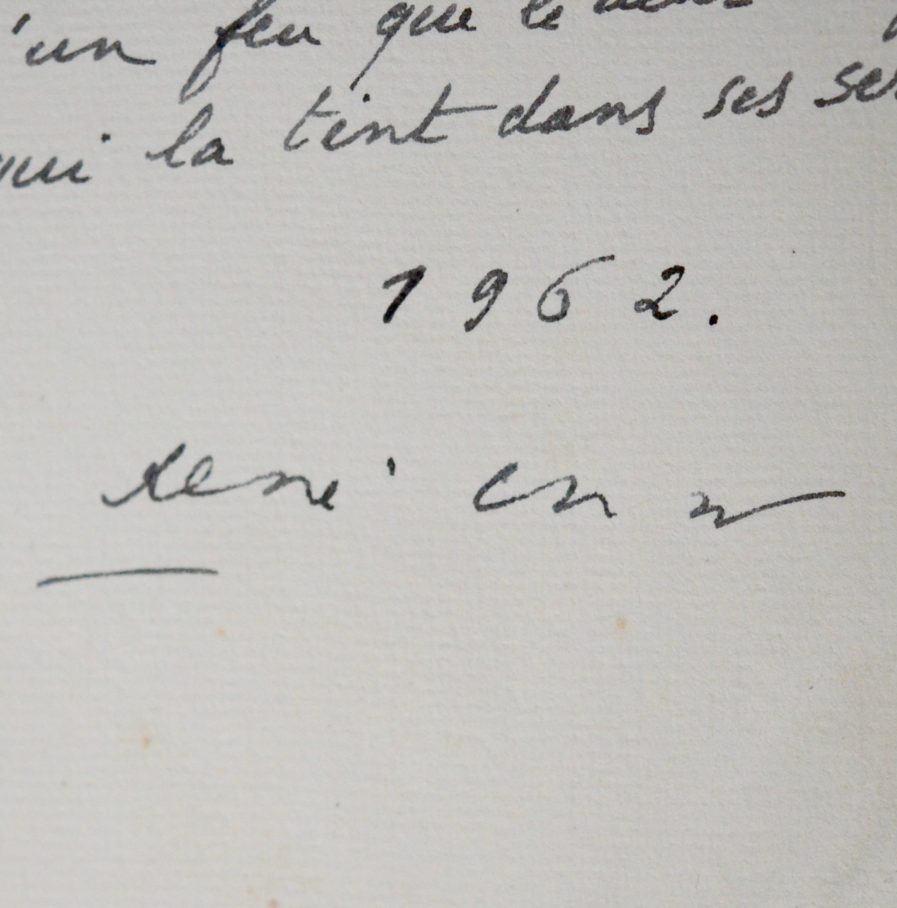 'un feu que le
qui la tint dans ses
1962.
René